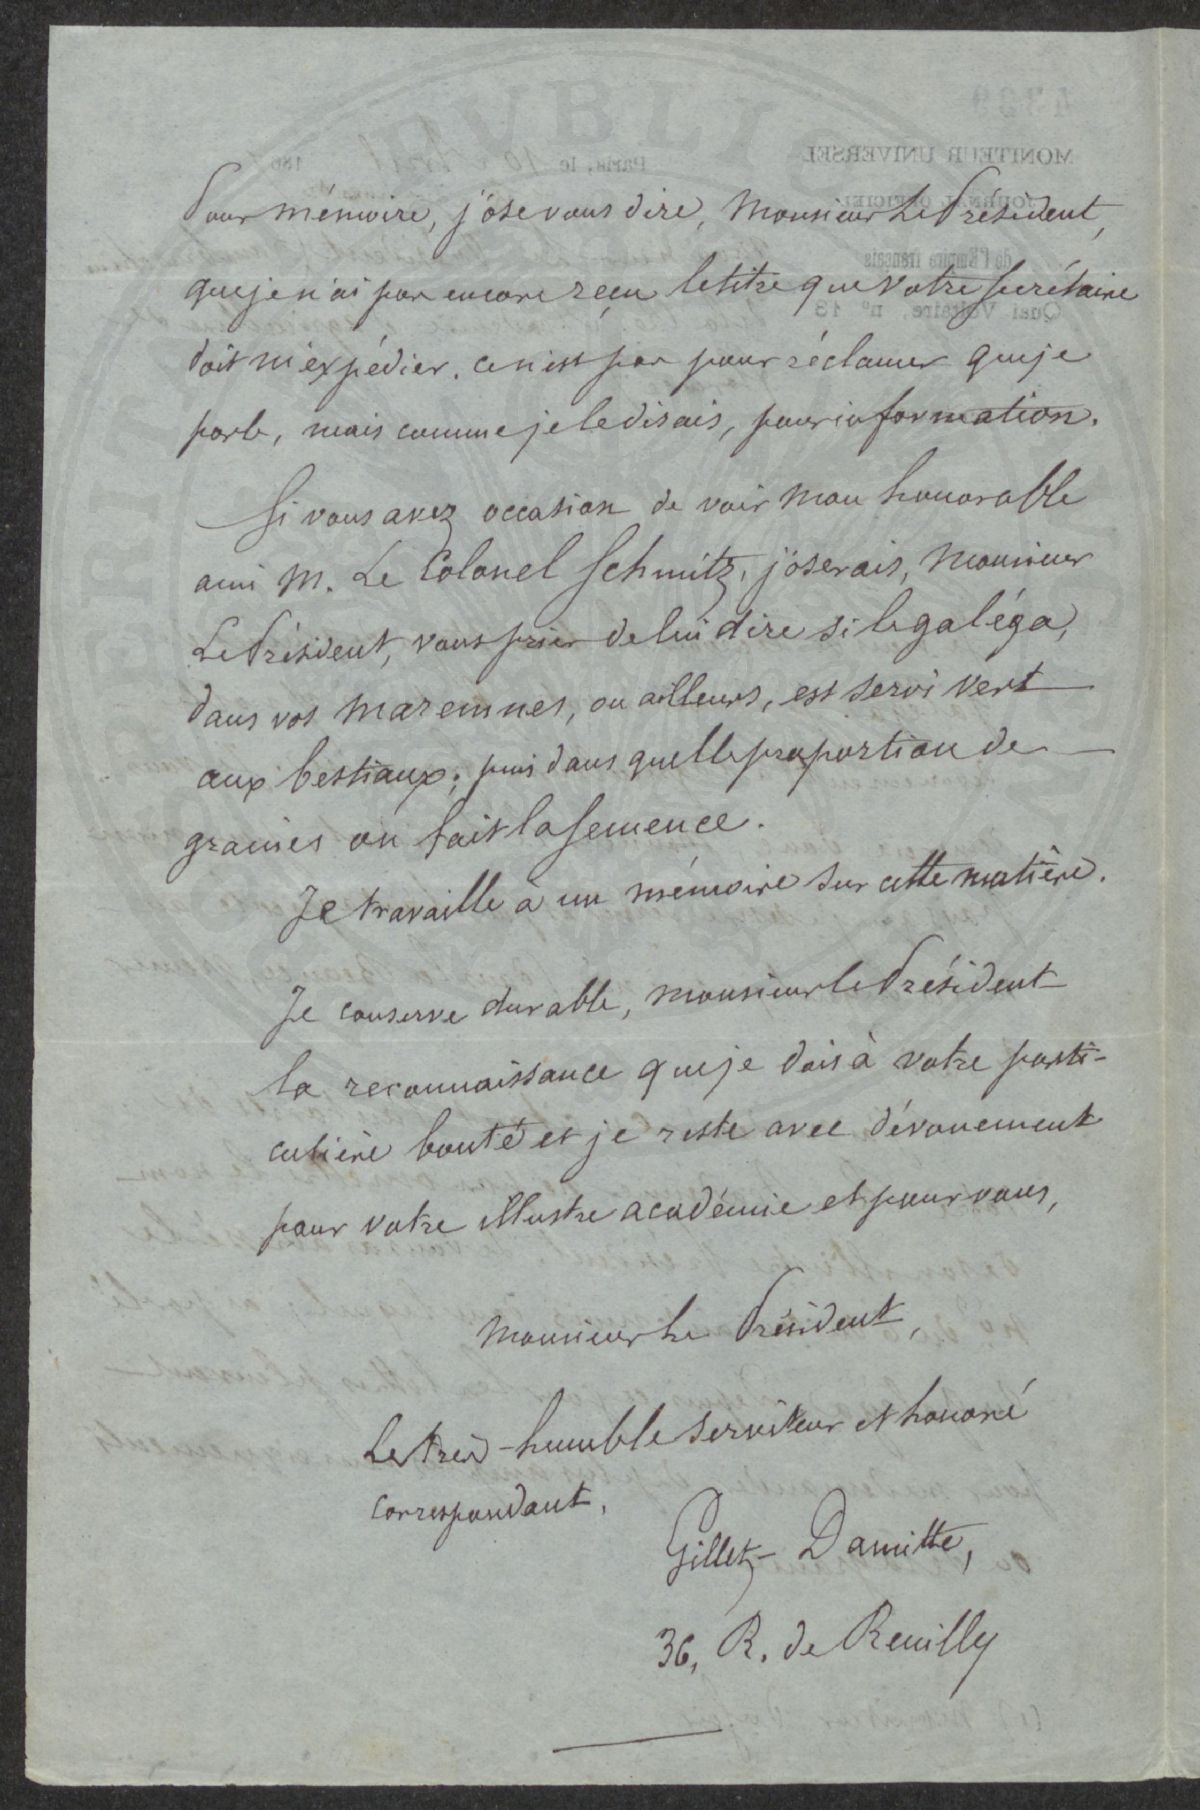 Pour mémoire, j'ose vous dire, Monsieur Le Président,
que je n'ai pas encore réçu le titre que votre secrétaire
doit m'expédier. ce n'est pas pour réclamer que je
parle, mais comme je le disais, pour information.
Si vous avez occasion de voir mon honorable
ami M. Le Colonel Schmitz, j'oserais, Monsieur
Le Président, vous prier de lui dire si le galéga,
dans vos maremnes, ou ailleurs, est servi vert
aux bestiaux; puis dans quelle proportion de
graines on fait la semence.
Je travaille à un mémoire sur cette matière.
Je conserve durable, Monsieur le Président
la reconnaissance que je dois à votre parti-
culière bonté et je reste avec dévouement
pour votre illustre académie et pour vous,
Monsieur Le Président,
Le très-humble serviteur et honoré
correspondant,
Gillet-Damitte,
36, R. de Reuilly